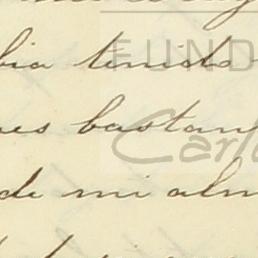 bia tenido
es bastan
de mi alm
FUND
Carl